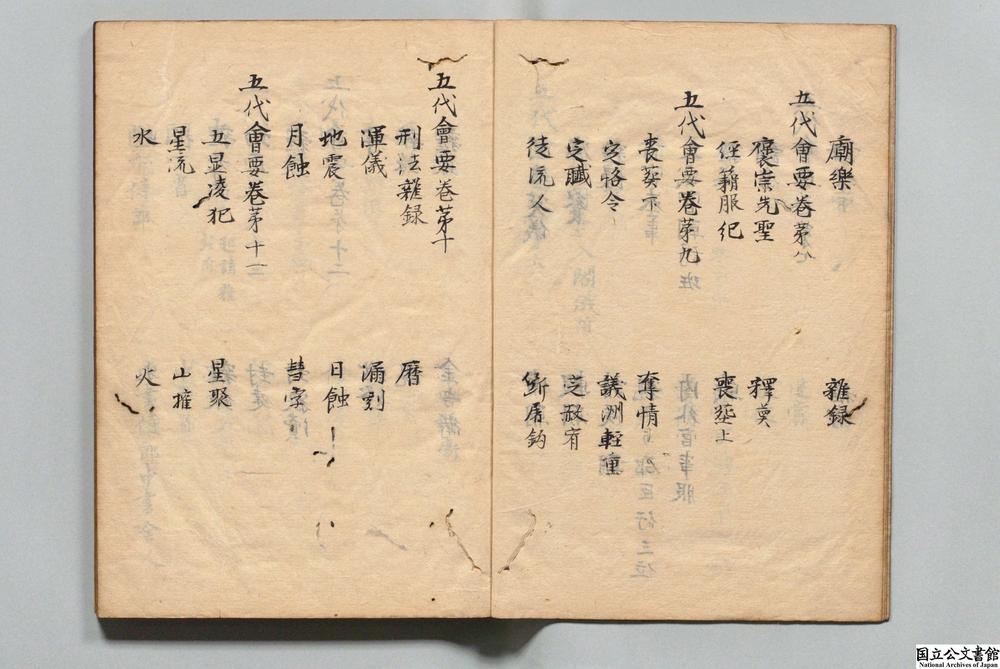 廟樂 雜録
五代會要巻苐八
襃崇先聖 釋奠
經籍服紀 喪𦵏上
五代會要巻苐九
喪葬下 奪情
定格令 議刑軽重
定贓 定赦宥
徒流人 断屠鈎
五代會要巻苐十
刑法雜録 曆
渾儀 漏刻
地震 日蝕
月蝕 彗孛
五代會要巻苐十一
五星凌犯 星聚
星流 山摧
水 火
国立公文書館
National Archives of Japan